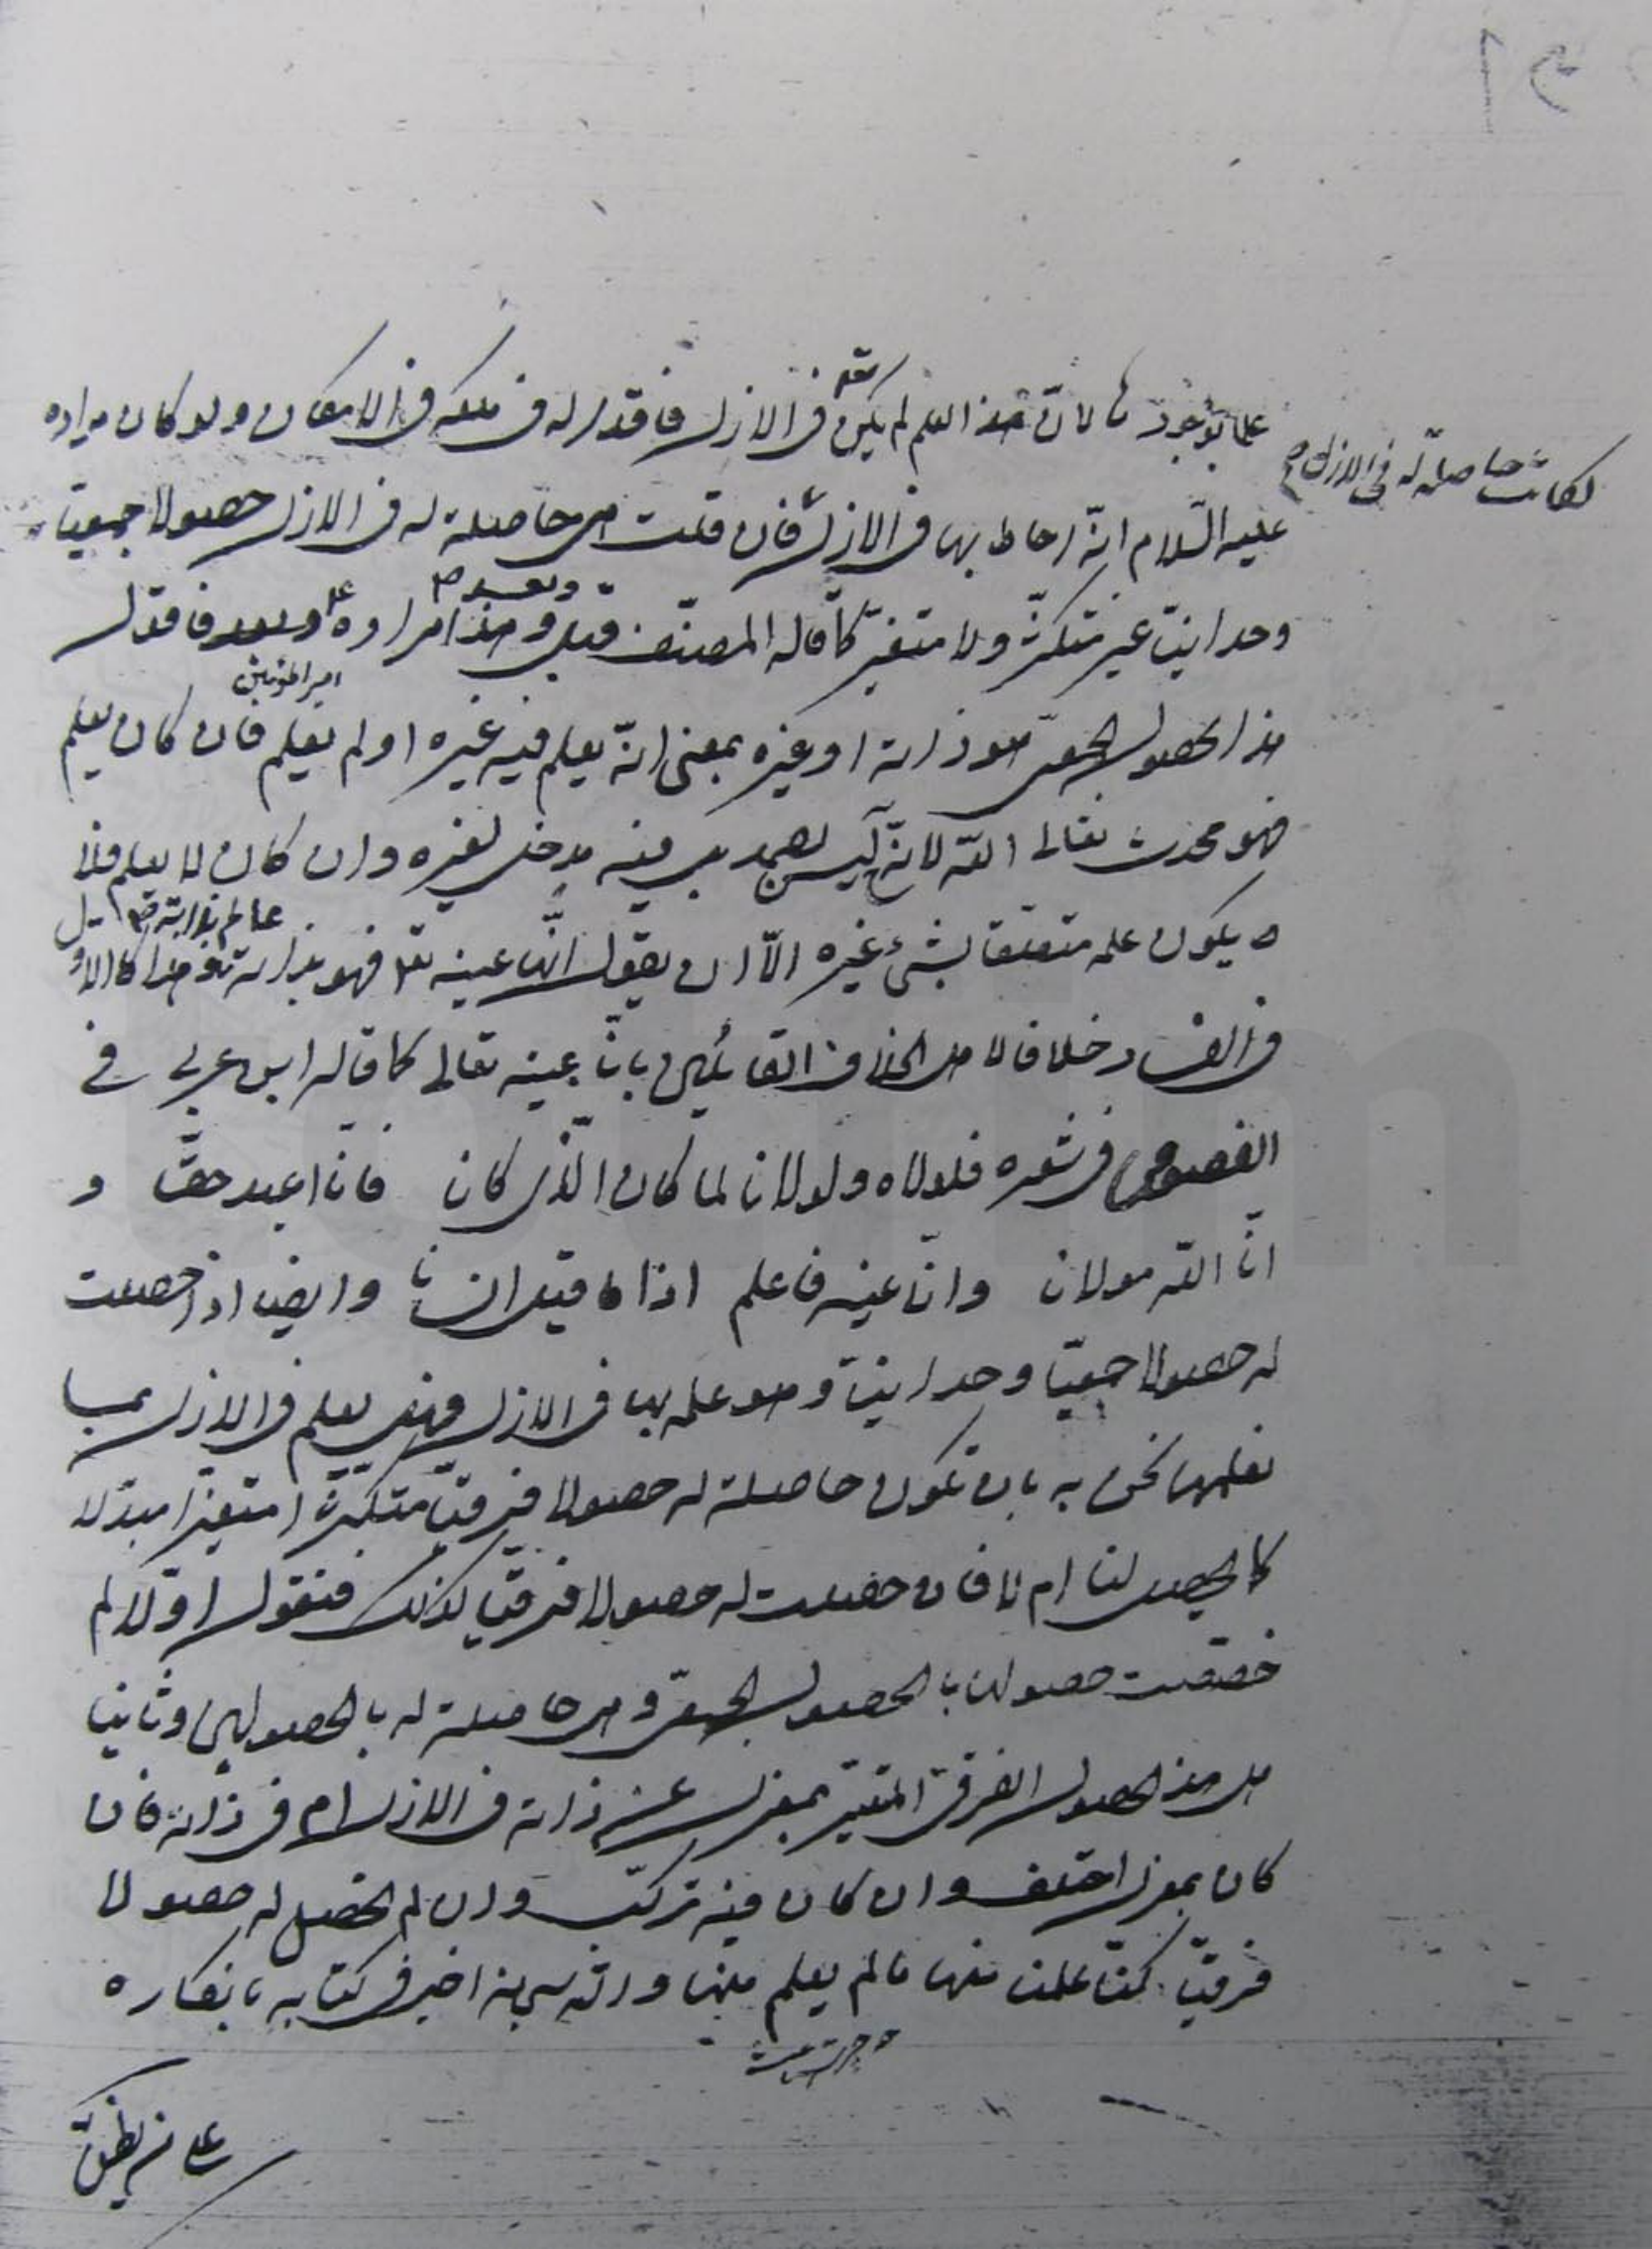 علما بوجودها لان هذا العلم لم يكن معه في الازل فاقد له في ملكه في الامكان ولو كان مراده
لكانت حاصلة له في الازل
عليه السلام انه احاط بها في الازل فان قلت هي حاصلة له في الازل حصولا جمعيا
وحدانيا غير متكثر ولا متغير كما قاله المصنف قبل وبعد وهذا مراده ع فاقول
امير المؤمنين
هذا الحصول الجمعي هو ذاته او غيره بمعنى انه يعلم فيه غيره او لم يعلم فان كان يعلم
فهو محدث تعالى الله لانه ليس بصمد بل فيه مدخل لغيره وان كان لا يعلم فلا
يكون علمه متعلقا بشيء غيره الا ان يقول انها عينه تع فهو بذاته عالم بذاته وهذا كالاول
في الفساد خلافا لاهل الخلاف القائلين بانا عينه تعالى كما قاله ابن عربي في
الفصوص في شعره فلولاه ولولانا لما كان الذي كان فانا اعبد حقا و
انا الله مولانا وانا عينه فاعلم اذا ما قيل انسانا وايضا اذا حصلت
له حصولا جمعيا وحدانيا وهو علمه بها في الازل فهل يعلم في الازل بما
نعلمها نحن به بان تكون حاصلة له حصولا فرقيا متكثرا متغيرا متبدلا
كما يحصل لنا ام لا فان حصلت له حصولا فرقيا كذلك فنقول اولا لم
خصصت حصولها بالحصول الجمعي وهي حاصلة له بالحصولين وثانيا
هل هذا الحصول الفرقي المتغير بمعزل عن ذاته في الازل ام في ذاته فان
كان بمعزل اختلف وان كان فيه تركب وان لم تحصل له حصولا
فرقيا كنا علمنا منها ما لم يعلم منها والله سبحانه اخبر في كتابه بانكاره
على من يظن